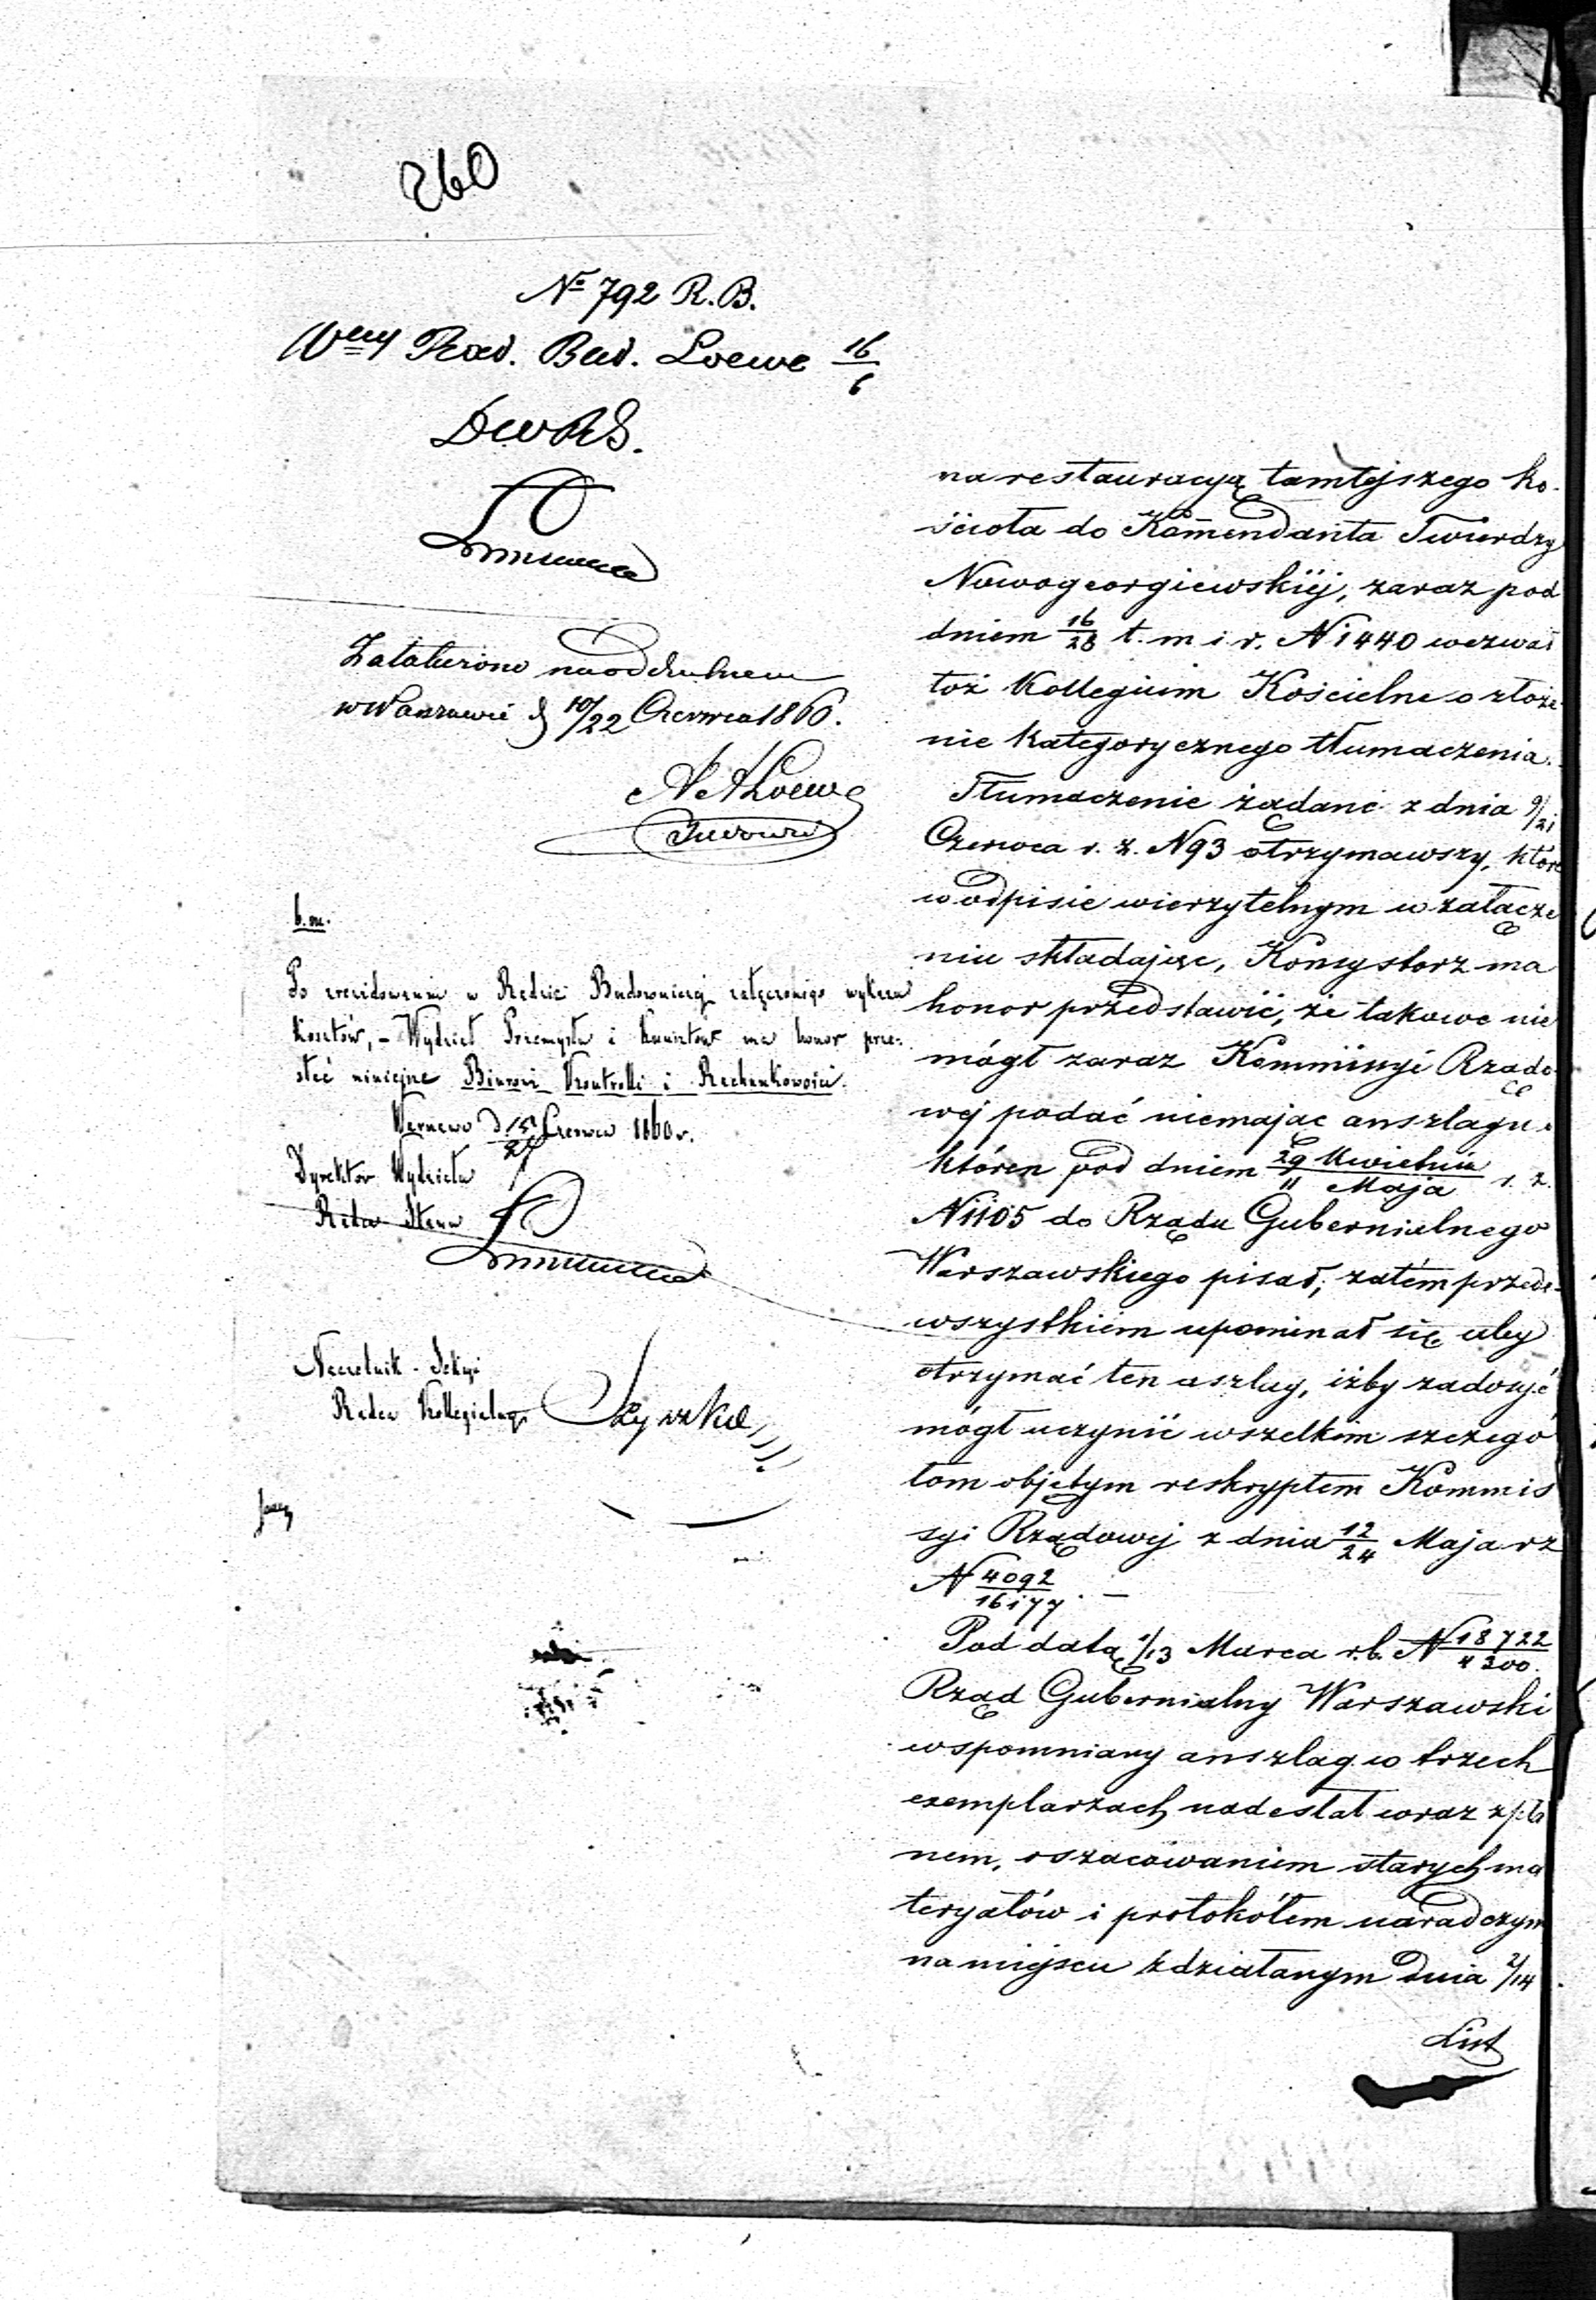 260
№ 792 R. B.
Wny Rad. Bud. Loewe 16/6
Załatwiono na oddzielnem
w Warszawie d 10/22 Czerwca 1860.
A Loewe
b. m.
Po zrewidowaniu w Radzie Budowniczej załączonego wykazu
kosztów, – Wydział Przemysłu i Kunsztów ma honor prze-
słać niniejsze Biurowi Kontrolli i Rachunkowości.
Warszawa d 15/27 Czerwca 1860 r.
Dyrektor Wydziału
Radca Stanu
Naczelnik Sekcyi
Radca Kollegialny
na restauracyą tamtejszego ko-
ścioła do Komendanta Twierdzy
Nowogeorgiewskiéj, zaraz pod
dniem 16/28 t. m i r. N 1440 wezwał
toż Kollegium Kościelne o złoże-
nie kategorycznego tłumaczenia.
Tłumaczenie żądane z dnia 9/21
Czerwca r. z. N 93 otrzymawszy, które
w odpisie wierzytelnym w załącze
niu składając, Konsystorz ma
honor przedstawić, że takowe nie
mógł zaraz Kommissyi Rządo-
wej podać niemając anszlagu o
któren pod dniem 29 Kwietnia/11 Maja r. z.
N 1105 do Rządu Gubernialnego
Warszawskiego pisał; zatém przede-
wszystkiém upominał się aby
otrzymać ten aszlag, iżby zadosyć
mógł uczynić wszelkim szczegó
łom objętym reskryptem Kommis
syi Rządowej z dnia 12/24 Maja r z
N 4092/16177. –
Pod datą 1/13 Marca r. b. N 18722/4200.
Rząd Gubernialny Warszawski
wspomniany anszlag w trzech
exemplarzach nadesłał wraz z pla
nem, oszacowaniem starych ma
teryałów i protokółem naradczym
na miejscu zdziałanym dnia 2/14
List